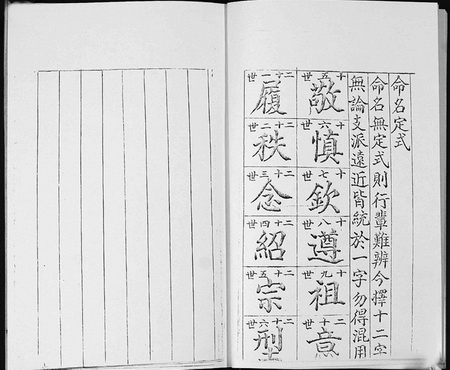 命名定式
命名無定式則行輩難辨今擇十二字
無論支派遠近皆統於一字勿得混用
十五世
敬
十六世
慎
十七世
欽
十八世
遵
十九世
祖
二十世
意
二十一世
履
二十二世
秩
二十三世
念
二十四世
紹
二十五世
宗
二十六世
型